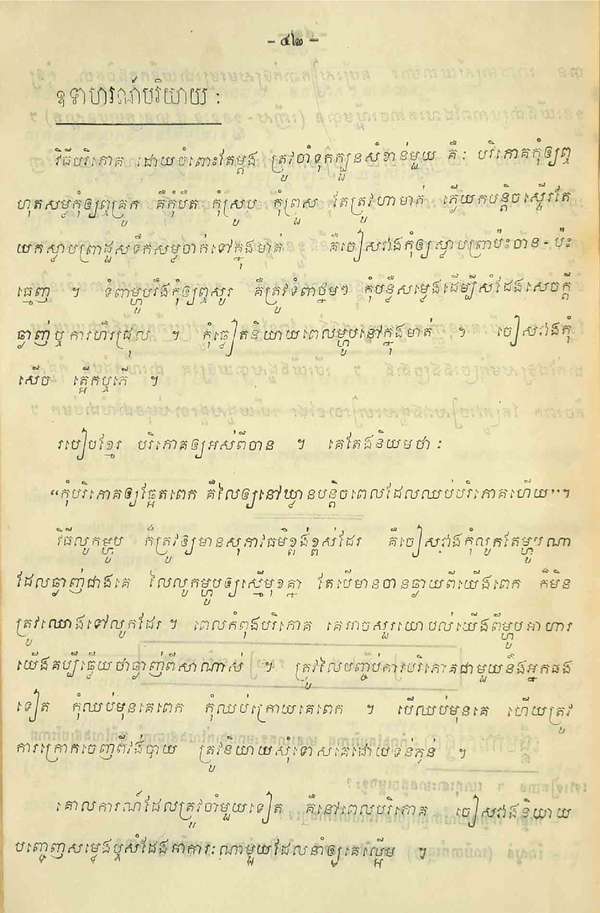 - ៤២ -
ឧទាហរណ៍បរិយាយ :
វិធីបរិភោគ ដោយចំពោះតែម្ដង ត្រូវចាំទុកក្បួនសំខាន់មួយ គឺ: បរិភោគកុំឲ្យឮ
ហុតសម្លកុំឲ្យឮគ្រូក គឺកុំបឺត កុំស្រូប កុំព្រួស តែត្រូវហាមាត់ ងើយកបន្តិចស្ទើរតែ
យកស្លាបព្រាដួសទឹកសម្លចាក់ទៅក្នុងមាត់ គឺចៀសវាងកុំឲ្យស្លាបព្រាប៉ះចាន - ប៉ះ
ធ្មេញ ។ ទំពាម្ហូបរឹងកុំឲ្យឮសូរ គឺត្រូវទំពាថ្នមៗ កុំបន្លឺសម្លេងដើម្បីសំដែងសេចក្ដី
ឆ្ងាញ់ឬការហឺរជ្រុល ។ កុំឆ្លៀតនិយាយពេលម្ហូបនៅក្នុងមាត់ ។ ចៀសវាងកុំ
សើច ក្អកឬភើ ។
របៀបខ្មែរ បរិភោគឲ្យអស់ពីចាន ។ គេតែងនិយមថា :
“កុំបរិភោគឲ្យឆ្អែតពេក គឺលៃឲ្យនៅឃ្លានបន្តិចពេលដែលឈប់បរិភោគហើយ”។
វិធីលូកម្ហូប ក៏ត្រូវឲ្យមានសុភាវធម៌ខ្ពង់ខ្ពស់ដែរ គឺចៀសវាងកុំលូកតែម្ហូបណា
ដែលឆ្ងាញ់ជាងគេ លៃលូកម្ហូបឲ្យស្មើមុខគ្នា តែបើមានចានឆ្ងាយពីយើងពេក ក៏មិន
ត្រូវឈោងទៅលូកដែរ ។ ពេលកំពុងបរិភោគ គេអាចសួរយោបល់យើងពីម្ហូបអាហារ
យើងគប្បីឆ្លើយថាឆ្ងាញ់ពីសាណាស់ ។ ត្រូវលៃបញ្ចប់ការបរិភោគជាមួយនឹងអ្នកផង
ទៀត កុំឈប់មុនគេពេក កុំឈប់ក្រោយគេពេក ។ បើឈប់មុនគេ ហើយត្រូវ
ការក្រោកចេញពីវង់បាយ ត្រូវនិយាយសុំទោសគេដោយទន់ភ្លន់ ។
គោលការណ៍ដែលត្រូវចាំមួយទៀត គឺនៅពេលបរិភោគ ចៀសវាងនិយាយ
បញ្ចេញសម្លេងឬសំដែងអាការៈណាមួយដែលនាំឲ្យគេខ្ពើម ។